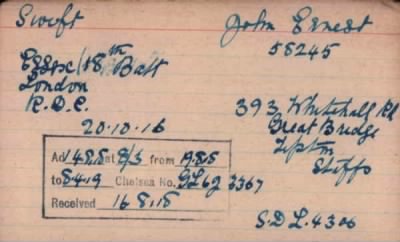 Swift
John Ernest
58245
Essex/18th Batt
London
R.D.C.
20.10.16
393 Whitehall Rd
Great Bridge
Tipton
Staffs
Ad 1488 at 8/3 from 19.8.15
to 84.9 Chelsea No. GL62 3367
Received 16 8.18
S.D.L. 4306